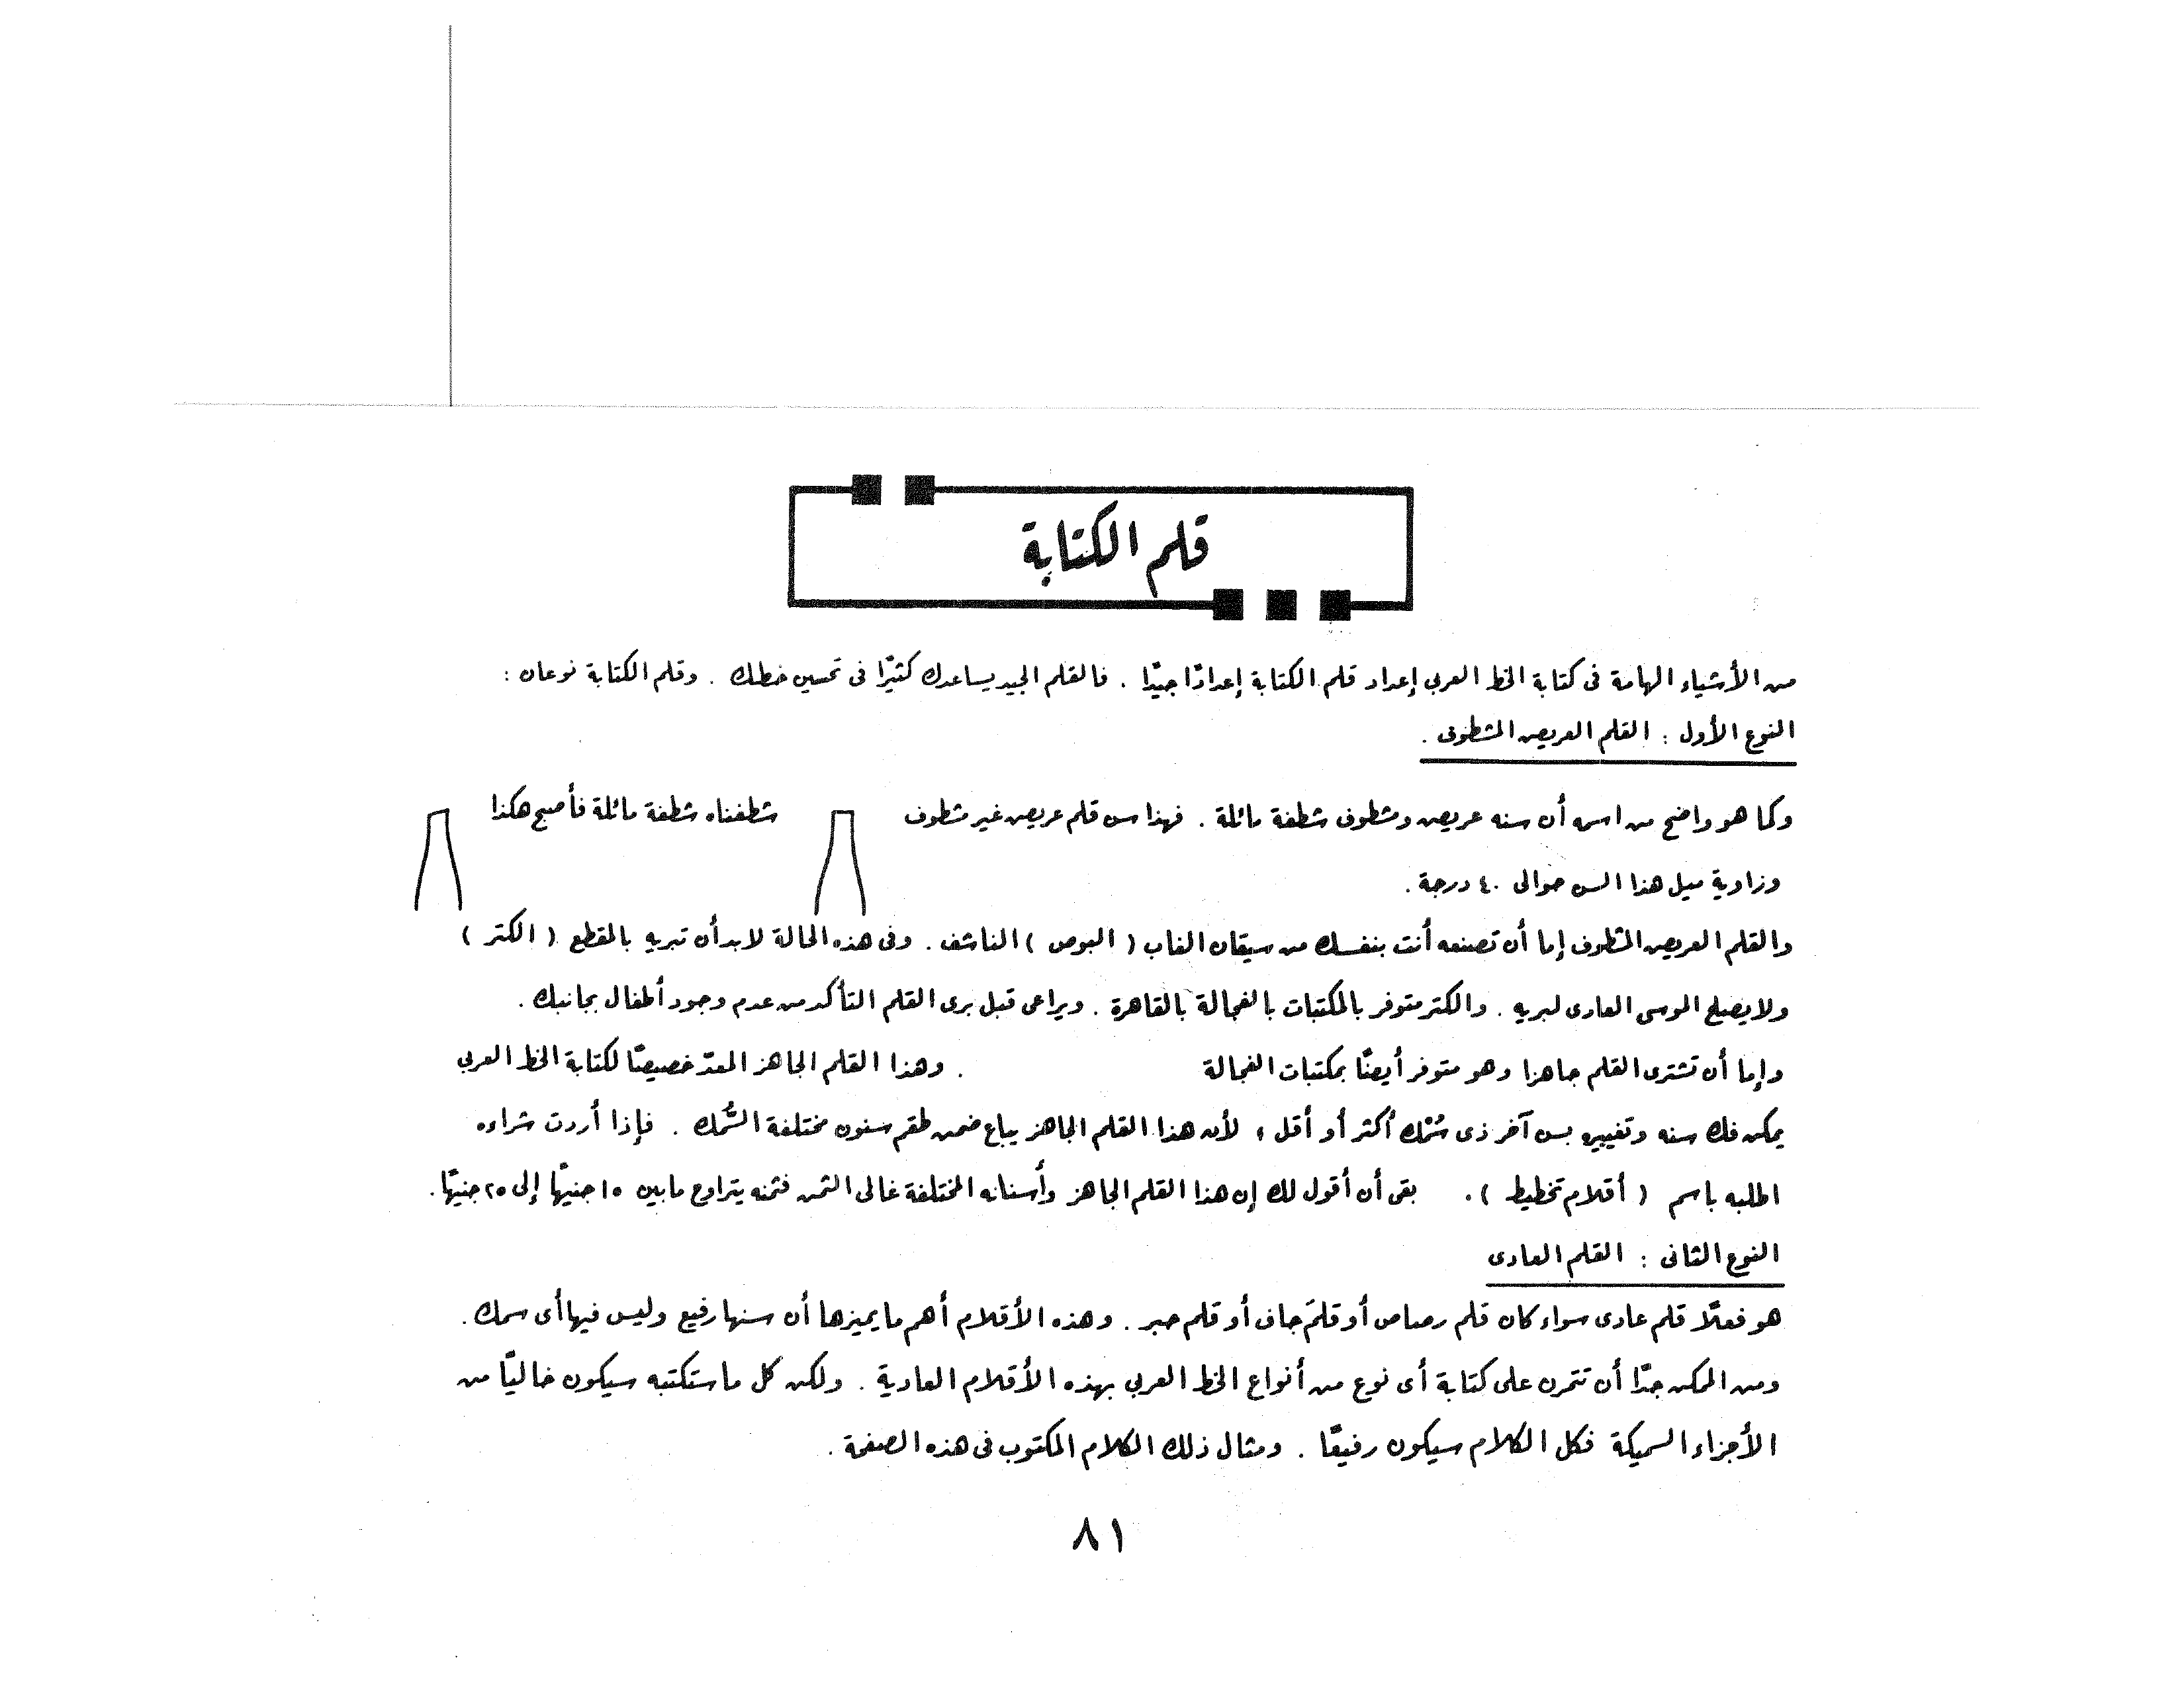 قلم الكتابة
من الأشياء الهامة فى كتابة الخط العربى إعداد قلم الكتابة إعدادًا جيدًا . فالقلم الجيد يساعدك كثيرًا فى تحسين خطك . وقلم الكتابة نوعان :
النوع الأول : القلم العريض المشطوف .
وكما هو واضح من اسمه أن سنه عريض ومشطوف شطفة مائلة . فهذا سن قلم عريض غير مشطوف شطفناه شطفة مائلة فأصبح هكذا
وزاوية ميل هذا السن حوالى ٤٠ درجة .
والقلم العريض المشطوف إما أن تصنعه أنت بنفسك من سيقان الغاب ( البوص ) الناشف . وفى هذه الحالة لابد أن تبريه بالمقطع ( الكتر )
ولا يصلح الموسى العادى لبريه . والكتر متوفر بالمكتبات بالفجالة بالقاهرة . ويراعى قبل برى القلم التأكد من عدم وجود أطفال بجانبك .
وإما أن تشترى القلم جاهزا وهو متوفر أيضًا بمكتبات الفجالة . وهذا القلم الجاهز المعدّ خصيصًا لكتابة الخط العربى
يمكن فك سنه وتغييره بسن آخر ذى سُمْك أكثر أو أقل ؛ لأن هذا القلم الجاهز يباع ضمن طقم سنون مختلفة السُّمك . فإذا أردت شراءه
اطلبه باسم ( أقلام تخطيط ) . بقى أن أقول لك إن هذا القلم الجاهز وأسنانه المختلفة غالى الثمن فثمنه يتراوح ما بين ١٥ جنيهًا إلى ٢٥ جنيهًا .
النوع الثانى : القلم العادى
هو فعلًا قلم عادى سواء كان قلم رصاص أو قلم جاف أو قلم حبر . وهذه الأقلام أهم ما يميزها أن سنها رفيع وليس فيها أى سمك .
ومن الممكن جدًا أن تتمرن على كتابة أى نوع من أنواع الخط العربى بهذه الأقلام العادية . ولكن كل ما ستكتبه سيكون خاليًا من
الأجزاء السميكة فكل الكلام سيكون رفيعًا . ومثال ذلك الكلام المكتوب فى هذه الصفحة .
٨١